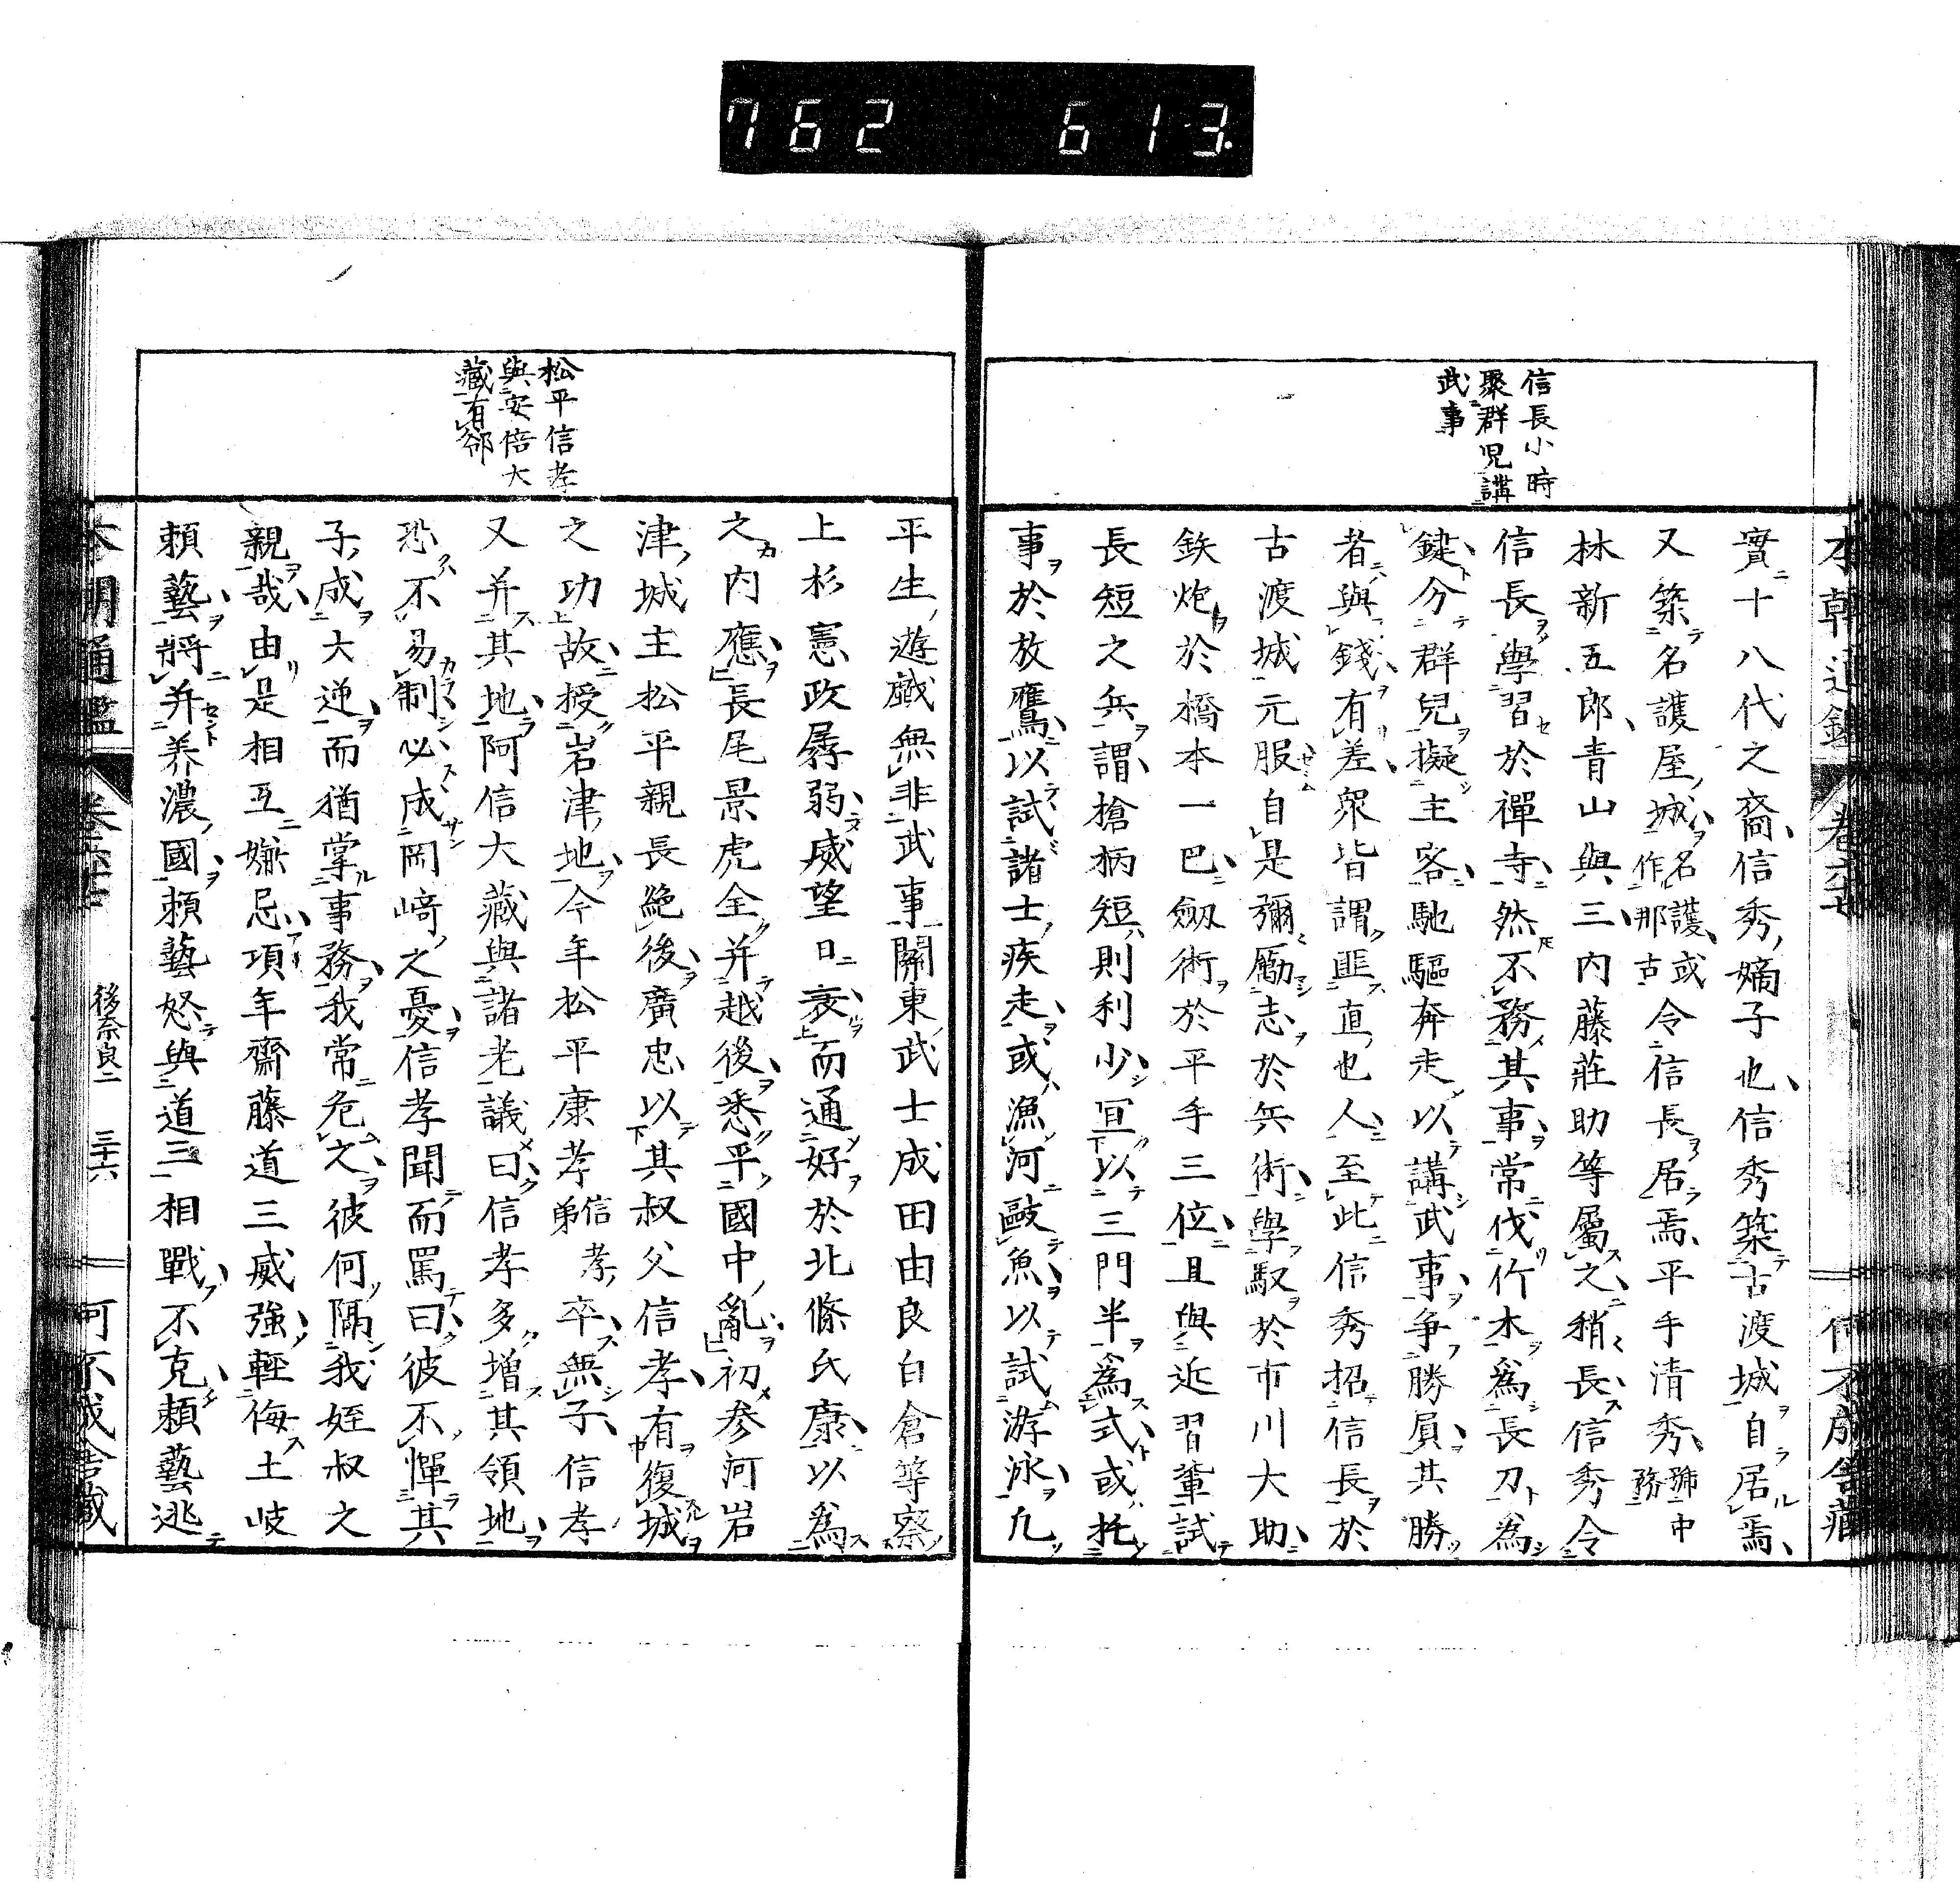 762 613.
本朝通鑑 卷六十七 何不成舍藏
信長小時
聚群児講
武事
實十八代之裔信秀嫡子也信秀築古渡城自居焉
又築名護屋城名護或作那古令信長居焉平手清秀號中務
林新五郎青山與三内藤莊助等屬之稍長信秀令
信長學習於禪寺然不務其事常伐竹木爲長刀爲
鍵分群兒擬主客馳驅奔走以講武事爭勝負其勝
者與錢有差衆皆謂匪直也人至此信秀招信長於
古渡城元服自是彌勵志於兵術學馭於市川大助
鉄炮於橋本一巴劔術於平手三位且與近習輩試
長短之兵謂槍柄短則利少亘以三門半爲式或托
事於放鷹以試諸士疾走或漁河敺魚以試游泳凡
松平信孝
與安倍大
藏有郤
平生遊戯無非武事關東武士成田由良白倉等察
上杉憲政孱弱威望日衰而通好於北條氏康以爲
之内應長尾景虎全并越後悉平國中亂初参河岩
津城主松平親長絶後廣忠以其叔父信孝有復城
之功故授岩津地今年松平康孝信孝弟卒無子信孝
又并其地阿信大藏與諸老議曰信孝多增其領地
恐不易制必成岡﨑之憂信孝聞而罵曰彼不憚其
子成大逆而猶掌事務我常危之彼何隔我姪叔之
親哉由是相互嫌忌項年齋藤道三威強輕侮土岐
頼藝將并养濃國頼藝怒與道三相戰不克頼藝逃
本朝通鑑 卷六十七 後奈良二 三十六 何不成舍藏